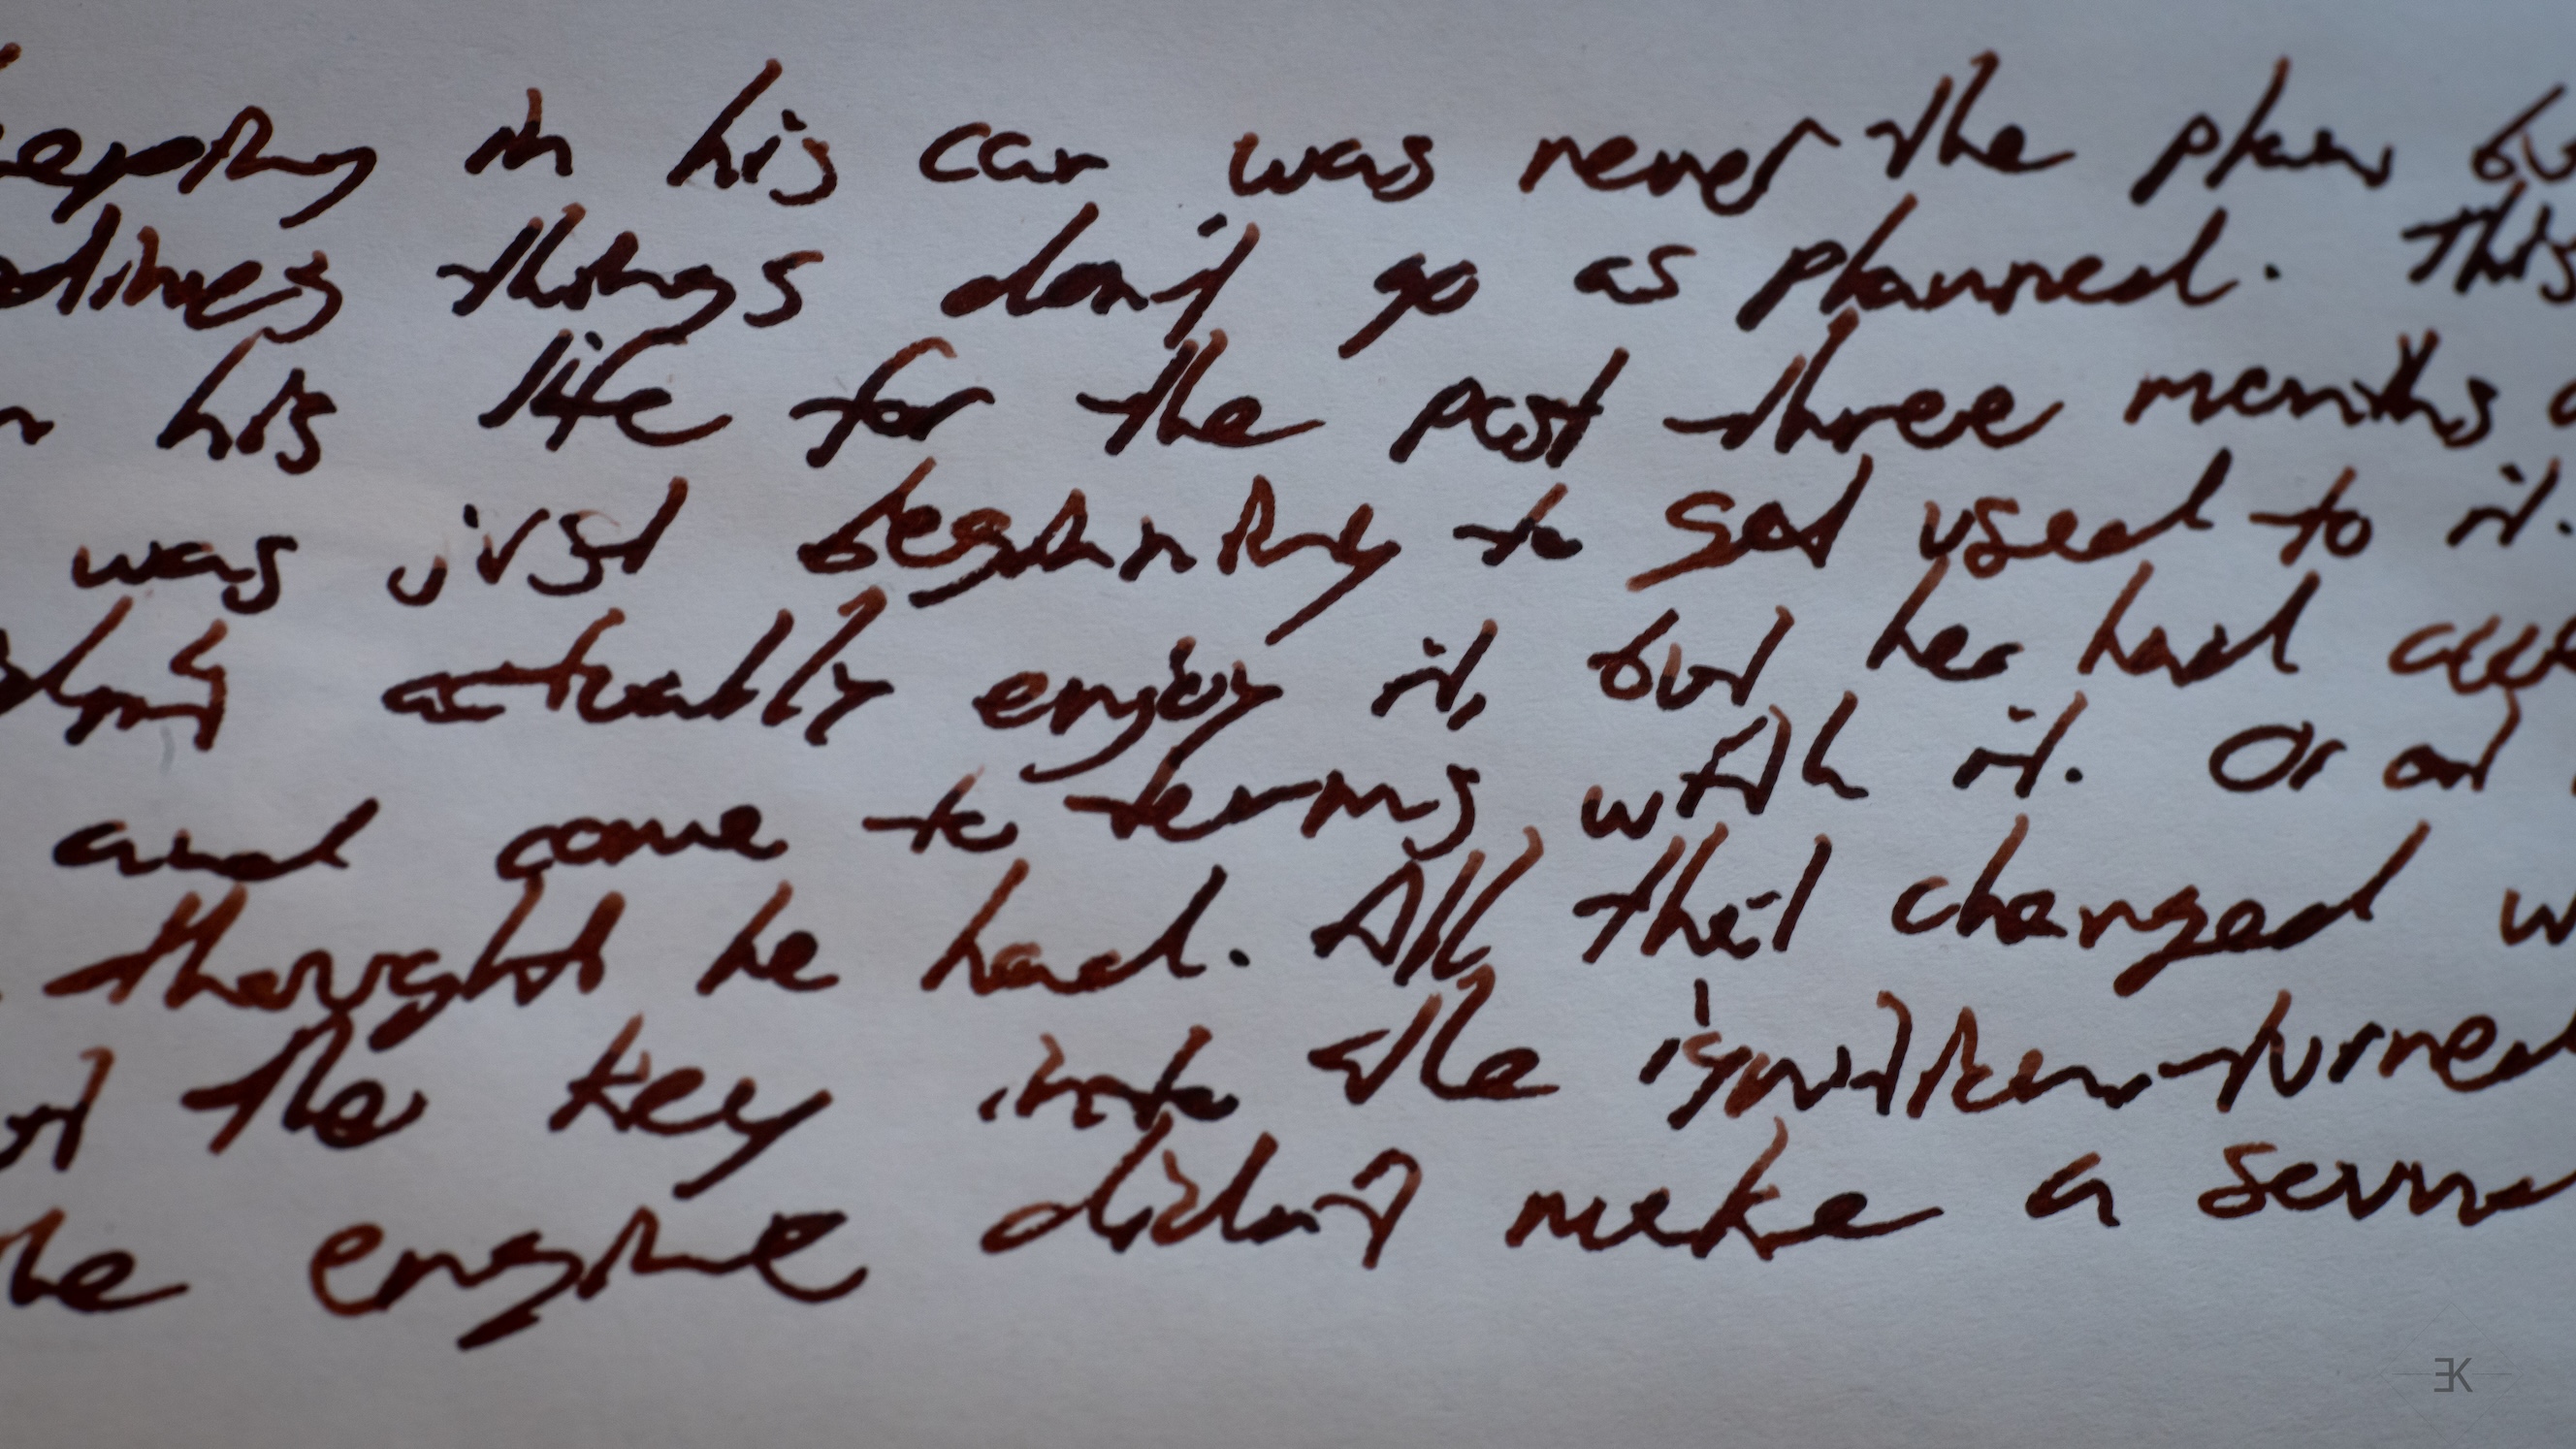 eeping in his car was never the plan bu
etimes things don't go as planned. This
n his life for the past three months a
was just beginning to get used to it.
didn't actually enjoy it, but he had acce
and come to terms with it. Or at
thought he had. All that changed w
ut the key into the ignition turned
he engine didn't make a soun
EK